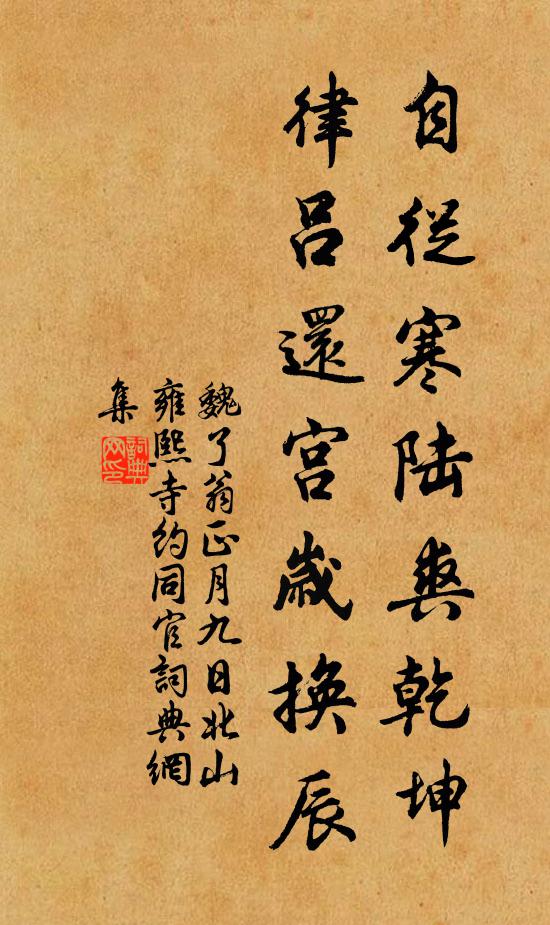 自從寒陸爽乾坤
律呂還宮歲換辰
魏了翁正月九日北山
雍熙寺約同官詞典網
集
詞典
网印